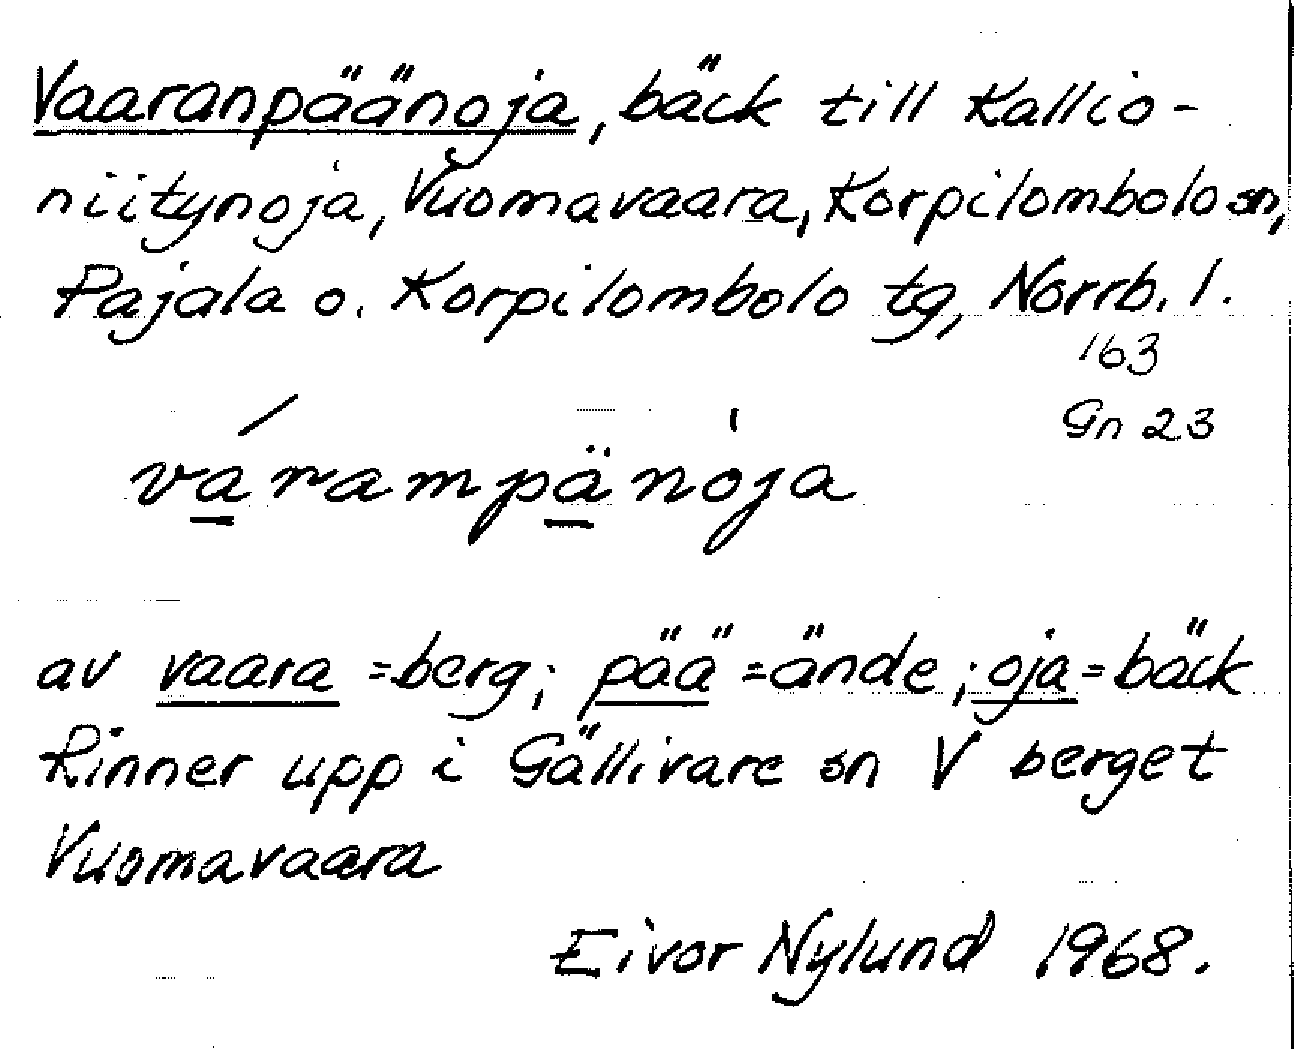 Vaaranpäänoja, bäck till Kallio-
niitynoja, Vuomavaara, Korpilombolo sn,
Pajala o. Korpilombolo tg, Norrb. l.
163
Gn 23
várampänòja
av vaara = berg; pää = ände; oja = bäck
Rinner upp i Gällivare sn V berget
Vuomavaara
Eivor Nylund 1968.